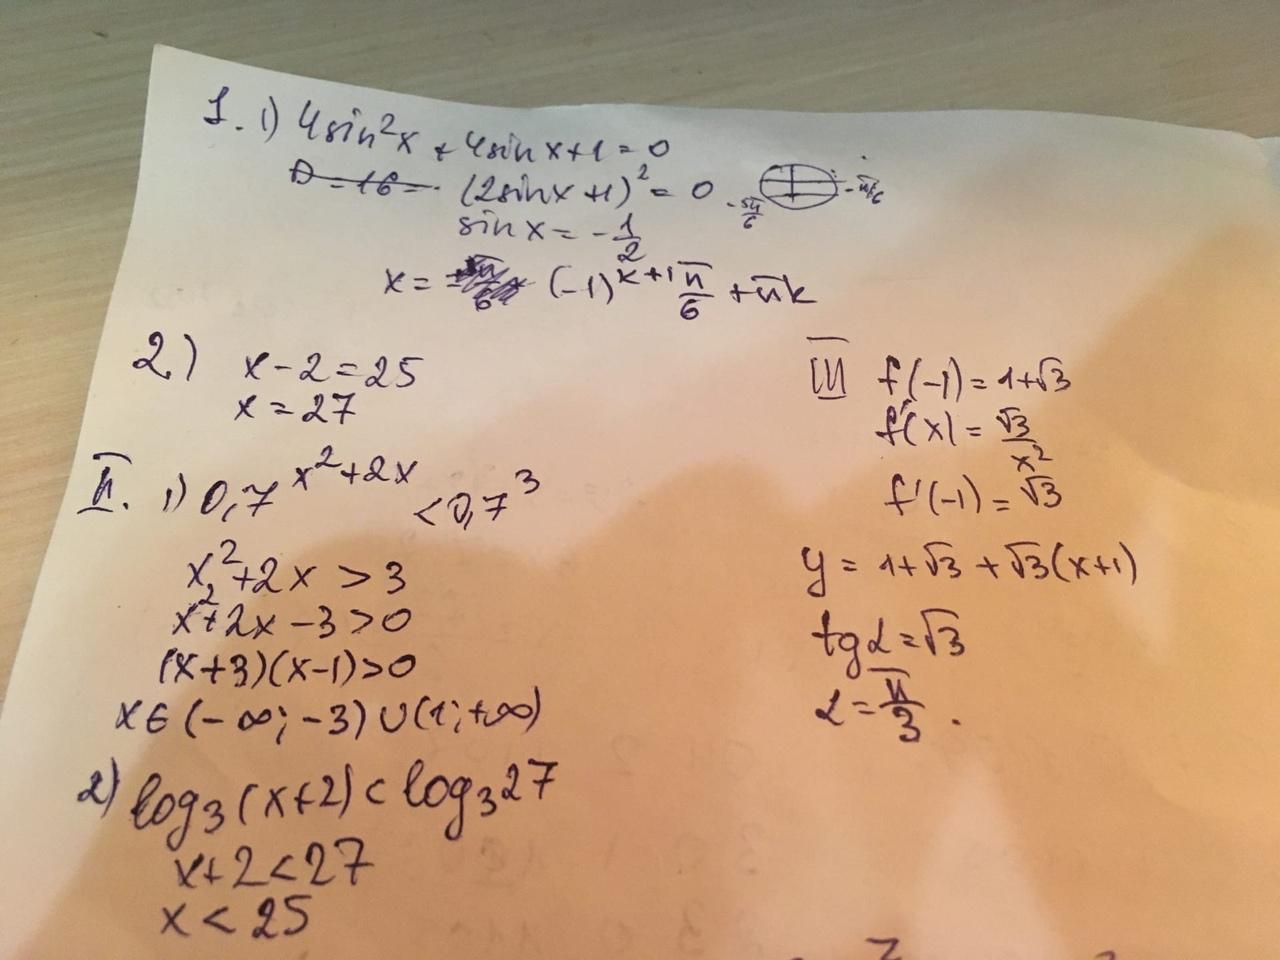 1. 1) 4sin²x + 4sin x + 1 = 0
D = 16 - (2sinx + 1)² = 0 -5π/6 -π/6
sin x = -1/2
x = (-1)^(k+1) π/6 + πk
2) x - 2 = 25
x = 27
II. 1) 0,7^(x²+2x) < 0,7³
x² + 2x > 3
x² + 2x - 3 > 0
(x+3)(x-1) > 0
x ∈ (-∞; -3) ∪ (1; +∞)
2) log₃(x+2) < log₃27
x + 2 < 27
x < 25
III f(-1) = 1 + √3
f'(x) = √3/x²
f'(-1) = √3
y = 1 + √3 + √3(x+1)
tg α = √3
α = π/3.